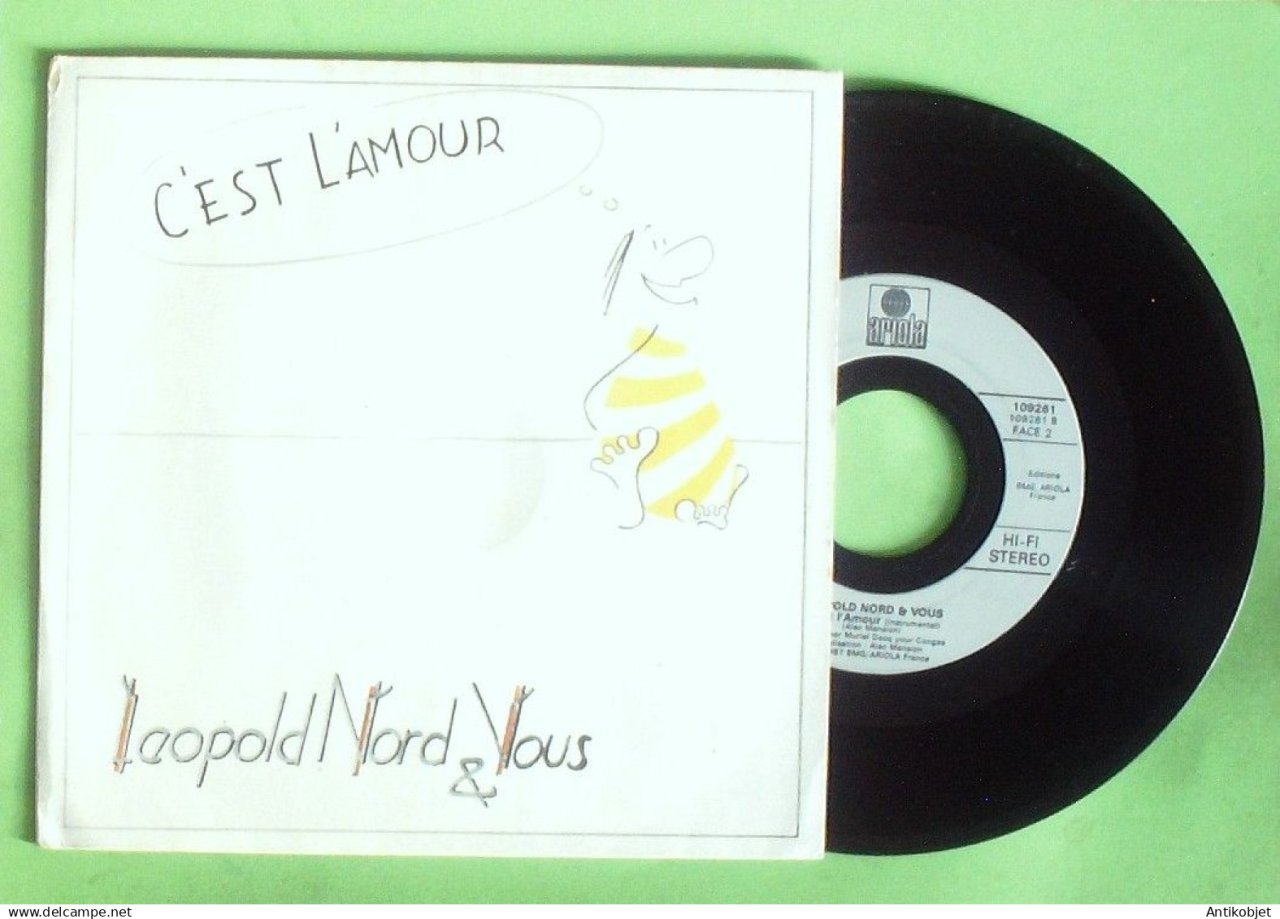 C'EST L'AMOUR
Leopold Nord & Vous
ariola
109281
109281 B
FACE 2
Editions
BMG ARIOLA
France
HI-FI
STEREO
OLD NORD & VOUS
l'Amour (Instrumental)
(Alec Mansion)
Muriel Dacq pour Congas
Alec Mansion
BMG/ARIOLA France
www.delcampe.net
Antikobjet